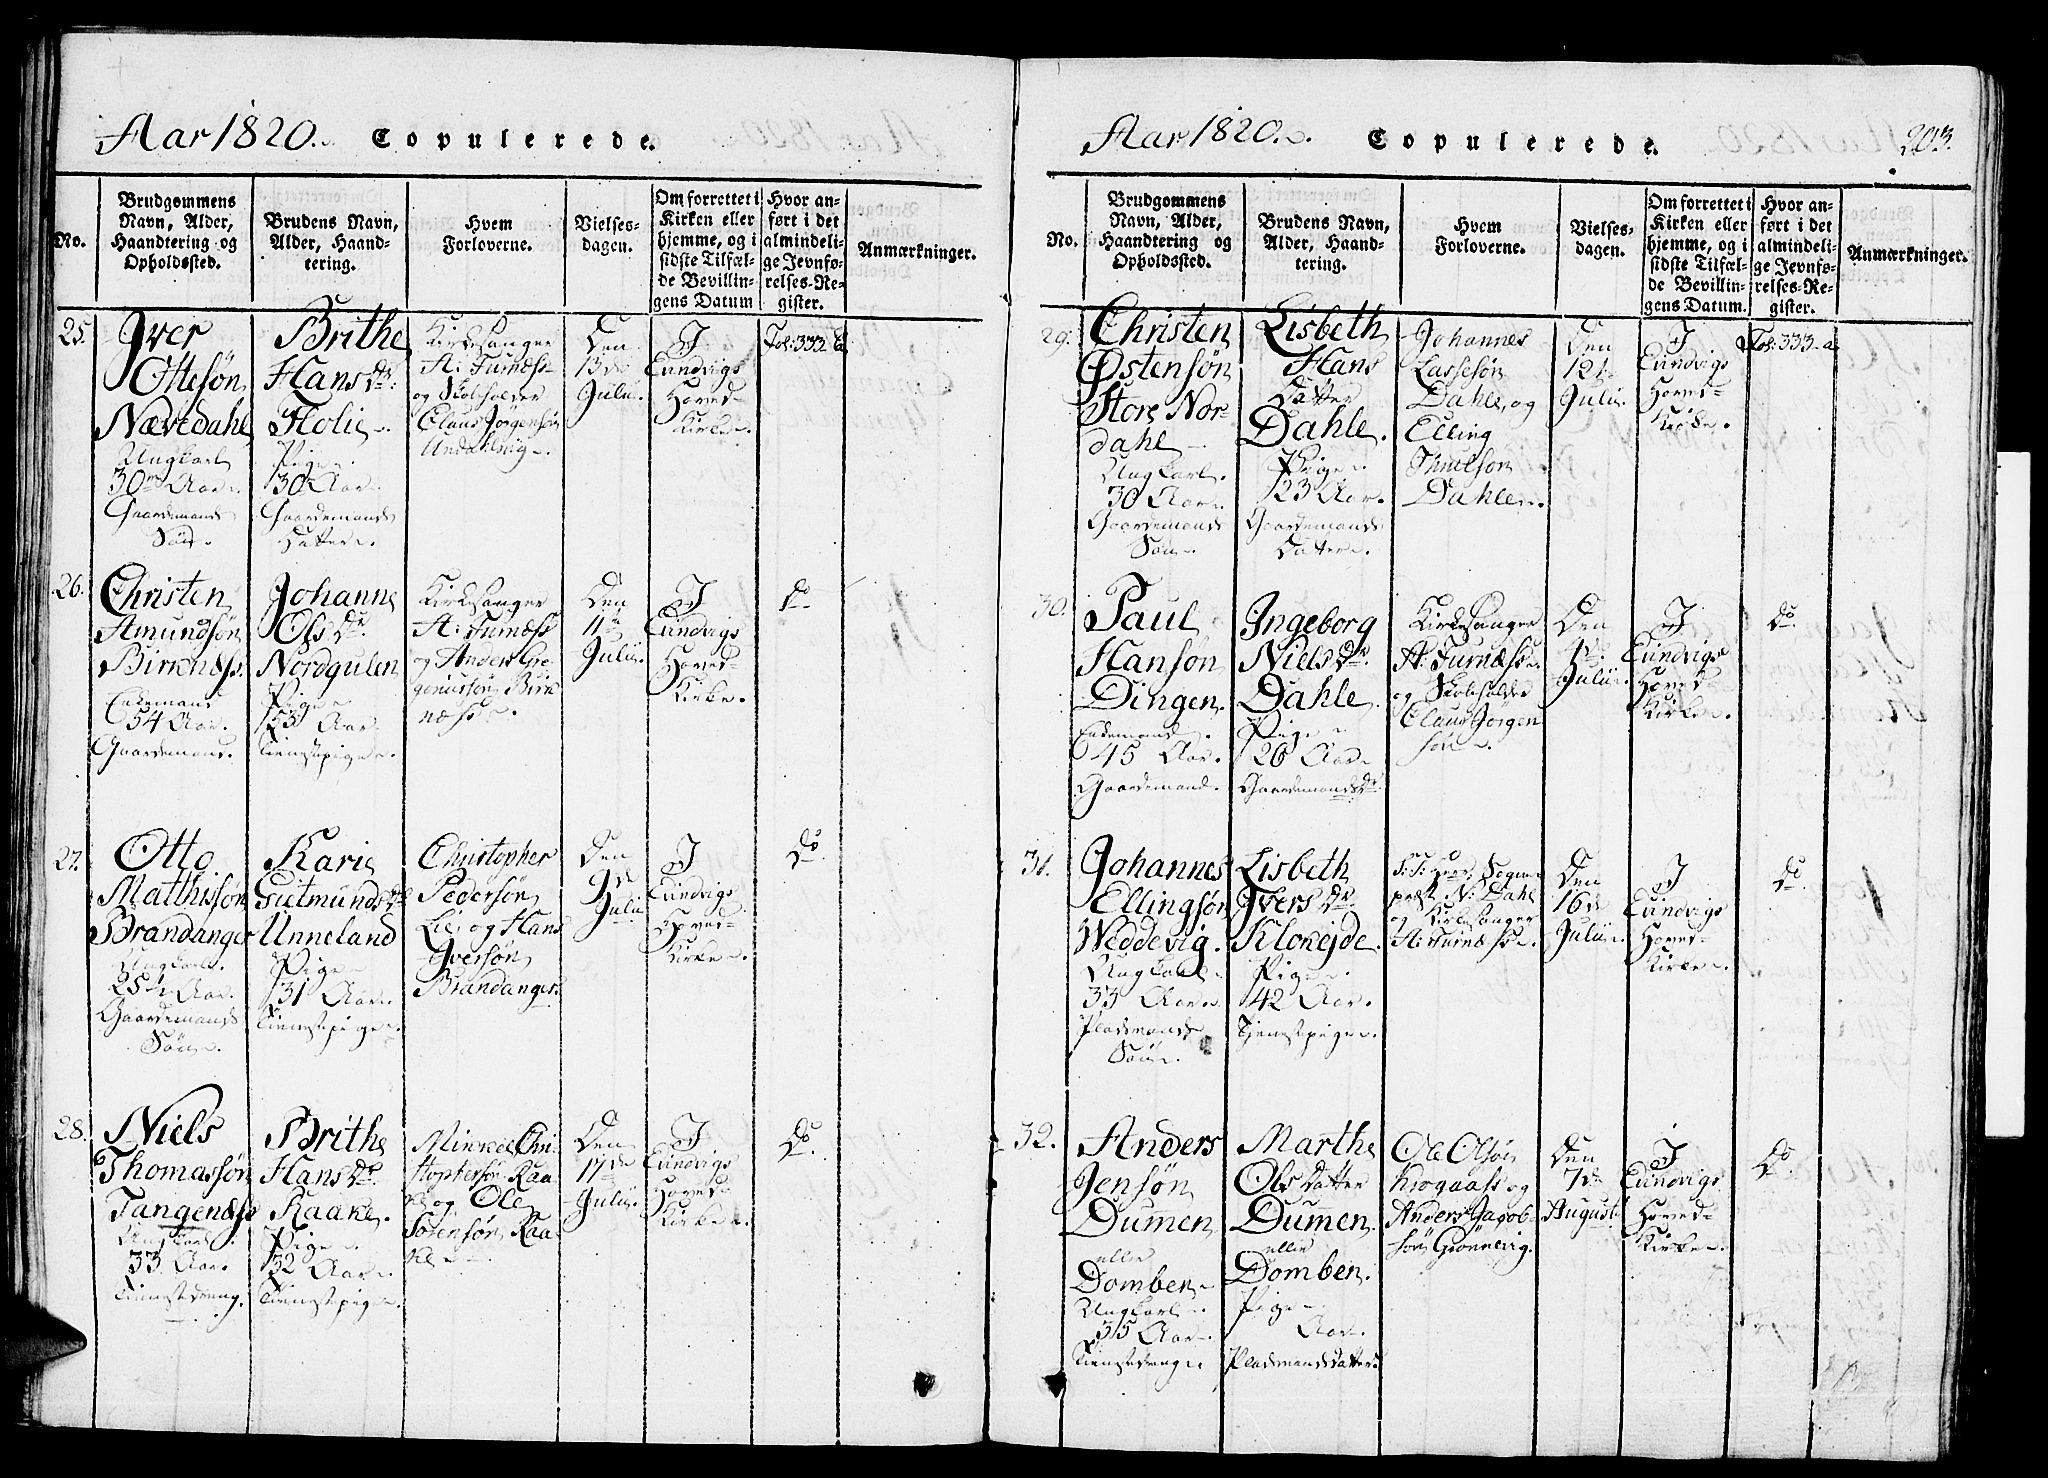 Aar 1820. Copulerede.
No.
Brudgommens
Navn, Alder,
Haandtering og
Opholdssted.
Brudens Navn,
Alder, Haand-
tering.
Hvem
Forloverne.
Vielses-
dagen.
Om forrettet i
Kirken eller
hjemme, og i
sidste Tilfæl-
de Bevillin-
gens Datum
Hvor an-
ført i det
almindeli-
ge Jevnfø-
relses-Re-
gister.
Anmærkninger.
25.
Iver
Ottesøn
Nævedahl
Ungkarl
30 Aar
Gaardemands
Søn
Brithe
Hans Dr.
Holie
Pige
30 Aar
Gaardemands
Datter
Kirkesanger
A: Furnæss
og Skoleholder
Claus Jørgensøn
Undahlsiig
Den
13de
Julii
I
Eundvigs
Hoved-
Kirke
Fol: 333 a
26.
Christen
Amundsøn
Birknæss
Enkemand
54 Aar
Gaardemand
Johanne
Ols Dr.
Nordgulen
Pige
53 Aar
Tienestepige
Kirkesanger
A: Furnæss
og Anders Gre-
goriussøn Birk
næss
Den
11te
Julii
I
Eundvigs
Hoved-
Kirke
Do
27.
Otto
Matthisøn
Brandanger
Ungkarl
25½ Aar
Gaardemands
Søn
Karie
Gietmunds Dr
Unneland
Pige
31 Aar
Tienestepige
Christopher
Pedersøn
Lie, og Hans
Iversøn
Brandanger
Den
9de
Julii
I
Eundvigs
Hoved-
Kirke
Do
28.
Niels
Thomassøn
Tangenæss
Ungkarl
33 Aar
Tienestedreng.
Brithe
Hans Dr.
Raake
Pige
32 Aar
Tienestepige
Minkel Chri-
stophersøn Raa
ke og Ole
Sørensøn Raa-
ke
Den
17de
Julii
I
Eundvigs
Hoved-
Kirke
Do.
Aar 1820. Copulerede. 203.
No.
Brudgommens
Navn, Alder,
Haandtering og
Opholdssted.
Brudens Navn,
Alder, Haand-
tering.
Hvem
Forloverne.
Vielses-
dagen.
Om forrettet i
Kirken eller
hjemme, og i
sidste Tilfæl-
de Bevillin-
gens Datum.
Hvor an-
ført i det
almindeli-
ge Jevnfø-
relses-Re-
gister.
Anmærkninger.
29.
Christen
Østensøn
Store Nor-
dahl
Ungkarl
30 Aar
Gaardemands
Søn
Lisbeth
Hans
Datter
Dahle.
Pige
23 Aar
Gaardemands
Datter
Johannes
Lassesøn
Dahle, og
Elling
Dahle
Den
12te
Julii
I
Eundvigs
Hoved-
Kirke
Fol: 333 a
30.
Paul
Hansøn
Dingen
Enkemand
45 Aar
Gaardemand
Ingeborg
Niels Dr
Dahle
Pige
26 Aar
Gaardemands Dr
Kirkesanger
A: Furnæss
og Skoleholder
Claus Jørgen
søn
Den
Julii
I
Eundvigs
Hoved-
Kirke
Do.
31.
Johannes
Ellingsøn
Weddevig.
Ungkarl
33 Aar
Pladsmands
Søn
Lisbeth
Ivers Dr
Klokejde.
Pige
42 Aar
Tjenestepige
S: T: Herr Sogne-
præst N: Dahl
og Kirkesanger
A: Furnæss
Den
16de
Julii
I
Eundvigs
Hoved-
Kirke
Do
32.
Anders
Jensøn
Dumen
eller
Domben
Ungkarl
35 Aar
Tienestedreng
Marthe
Ols Datter
Dumen
eller
Domben.
Pige
Aar
Pladsmands Datter
Ole Olsøn
Krogaass og
Anders Jacob-
søn Grønnevig.
Den
7de
August
I
Eundvigs
Hoved-
Kirke
Do